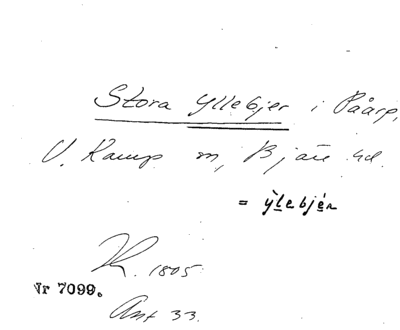 Stora Yllebjer i Påarp,
V. Karup sn, Bjäre hd.
= ỳlebjér
K. 1805.
Nr 7099.
Ant 33.